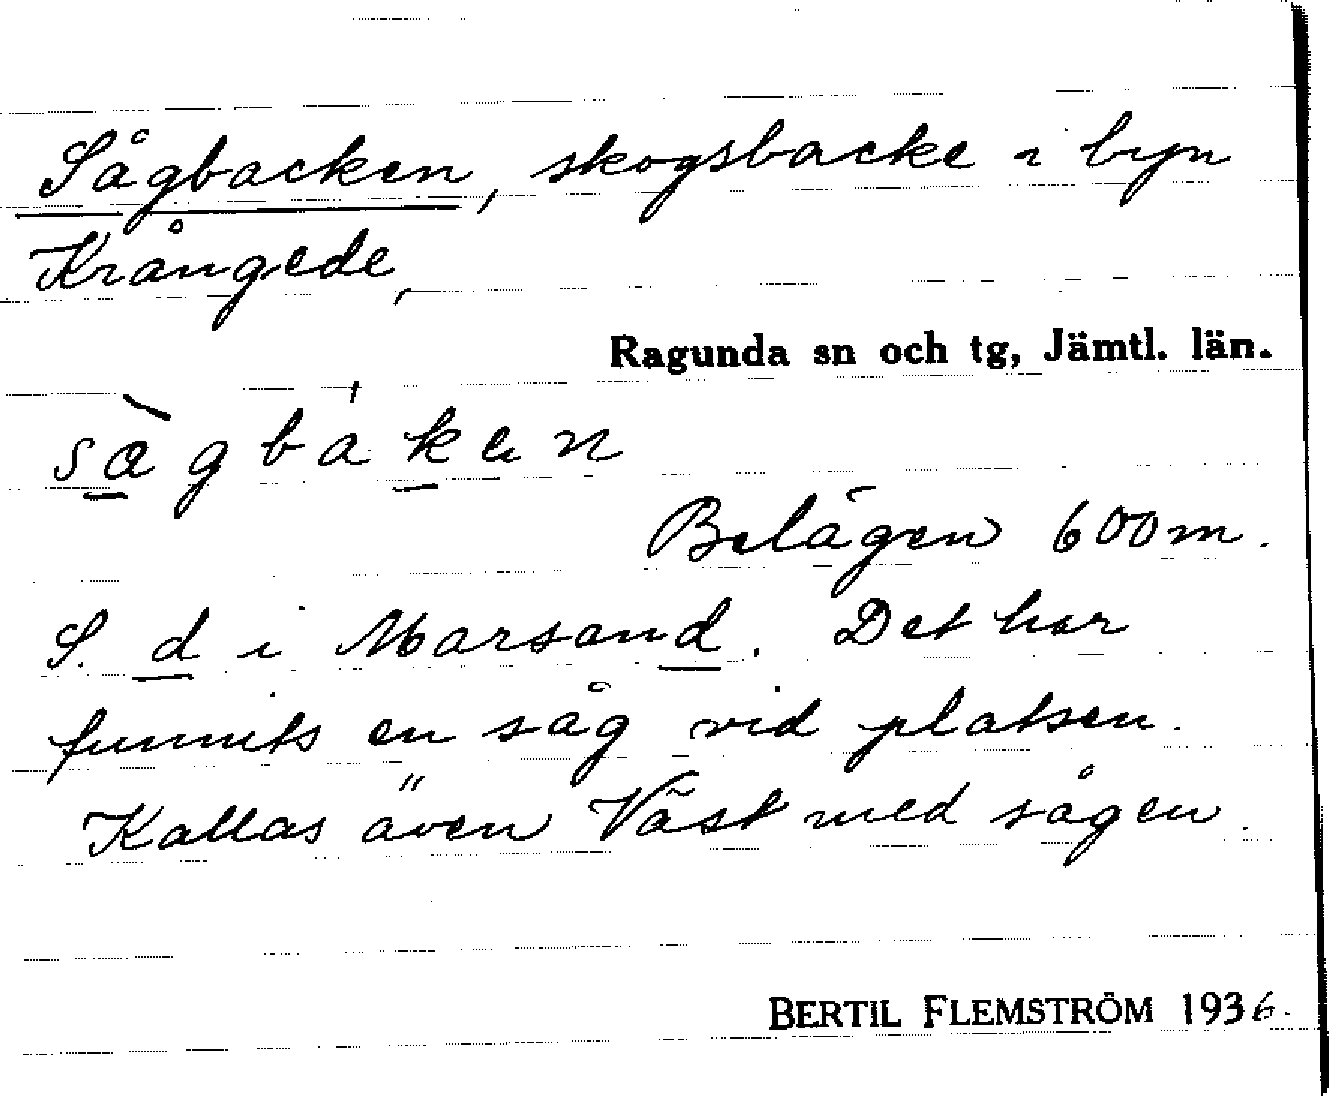 Sågbacken, skogsbacke i byn
Krångede,
Ragunda sn och tg, Jämtl. län.
Belägen 600 m.
S. d i Marsand. Det har
funnits en såg vid platsen.
Kallas även Väst med sågen.
BERTIL FLEMSTRÖM 1936.